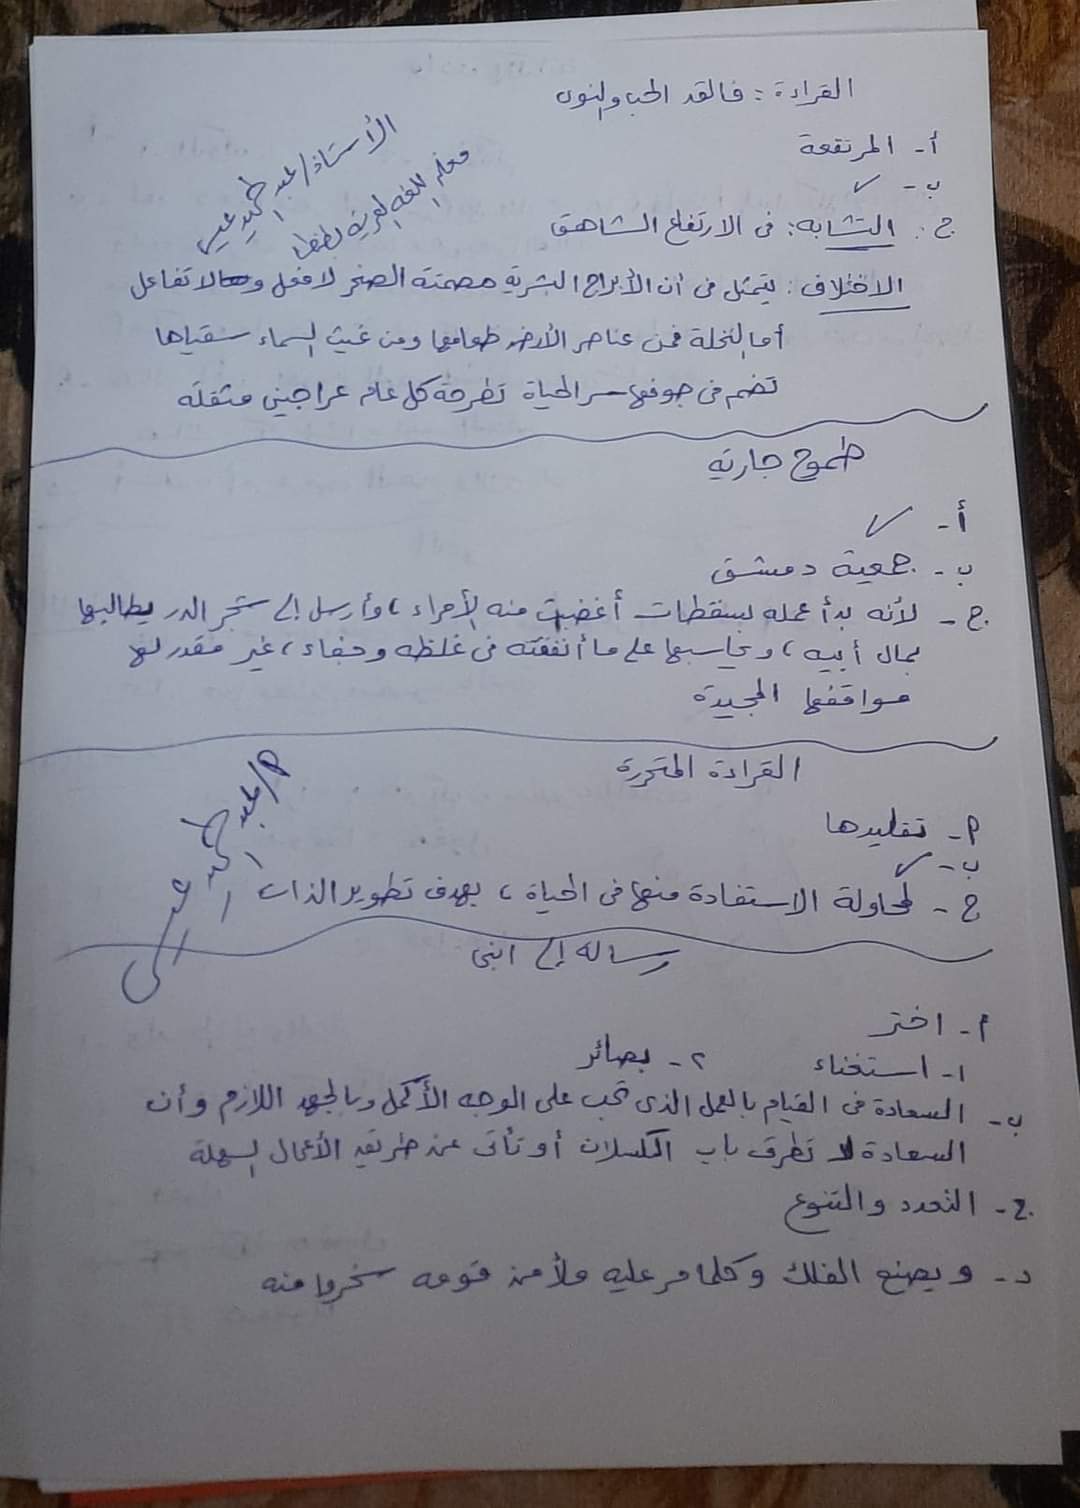 القراءة : فالقد الحب والنوى
أ- المرتفعة
ب- ✓
ج: التشابه: فى الارتفاع الشاهق
الاختلاف: يتمثل فى أن الأبراج البشرية مصمتة الصخر لا فعل ولا تفاعل
أما النخلة فمن عناصر الأرض طعامها ومن غيث السماء سقياها
تضم فى جوفها سر الحياة تطرحه كل عام عراجين مثقلة
الأستاذ/ عبد الحميد عيسى
معلم اللغة العربية بطنطا
طموح جارية
أ- ✓
ب- جمعية دمشق
ج- لأنه بدأ عمله بسقطات أغضبت منه الأمراء ، وأرسل إلى شجر الدر يطالبها
بمال أبيه ، ويحاسبها على ما أنفقته فى غلظه وجفاء ، غير مقدر لها
مواقفها المجيدة
القراءة المتحررة
أ- تقليدها
ب- ✓
ج- لمحاولة الاستفادة منها فى الحياة ، بهدف تطوير الذات
أ/ عبد الحميد عيسى
رسالة إلى ابنى
أ- اختر
١- استغناء ٢- بصائر
ب- السعادة فى القيام بالعمل الذى تحب على الوجه الأكمل وبالجهد اللازم وأن
السعادة لا تطرق باب الكسلان أو تأتى عن طريق الأعمال السهلة
ج- التعدد والتنوع
د- ويصنع الفلك وكلما مر عليه ملأ من قومه سخروا منه